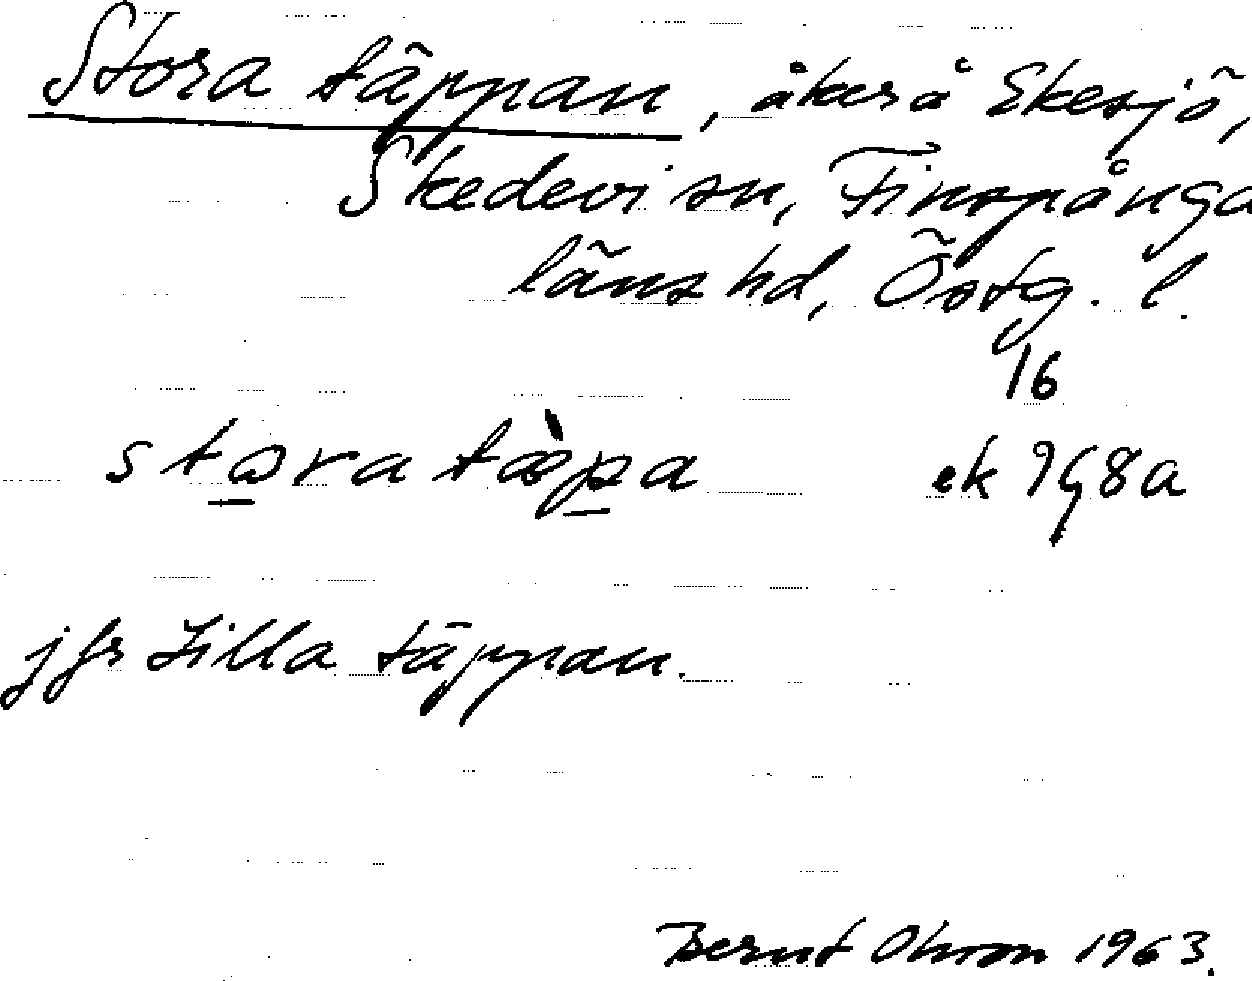 Stora täppan, åker å Ekesjö,
Skedevi sn, Finspånga
läns hd, Östg. l.
16
stora tæ̀pa ek 9G8a
jfr Lilla täppan.
Bernt Olsson 1963.